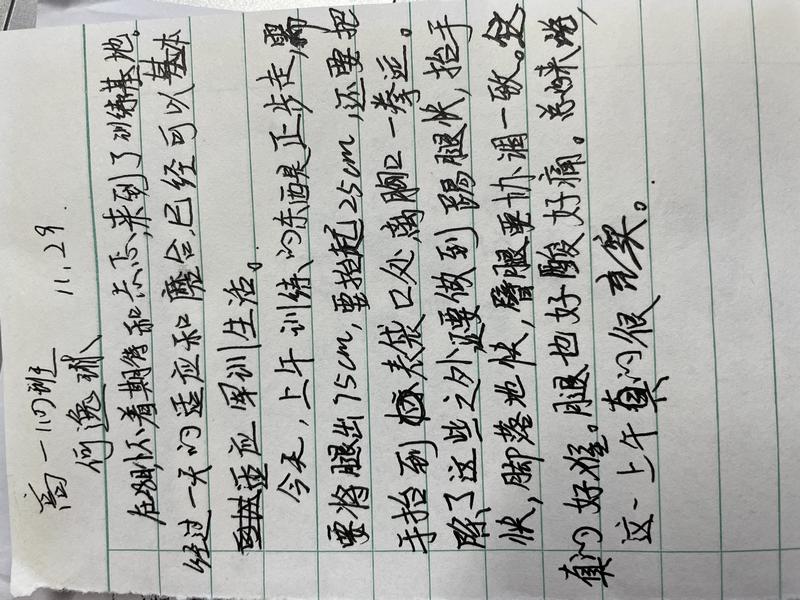 高一(1)班 11.29.
何逸球
在期怀着期待和忐忑,来到了训练基地。
经过一天的适应和磨合,已经可以基本
适应军训生活。
今天,上午训练的东西是正步走,需
要将腿出75cm,要抬起25cm,还要把
手抬到衣袋口处,离胸口一拳远。
除了这些之外还要做到踢腿快,抬手
快,脚落地快,臂腿要协调一致。这
真的好难。腿也好酸好痛。总之,
这一上午真的很充实。